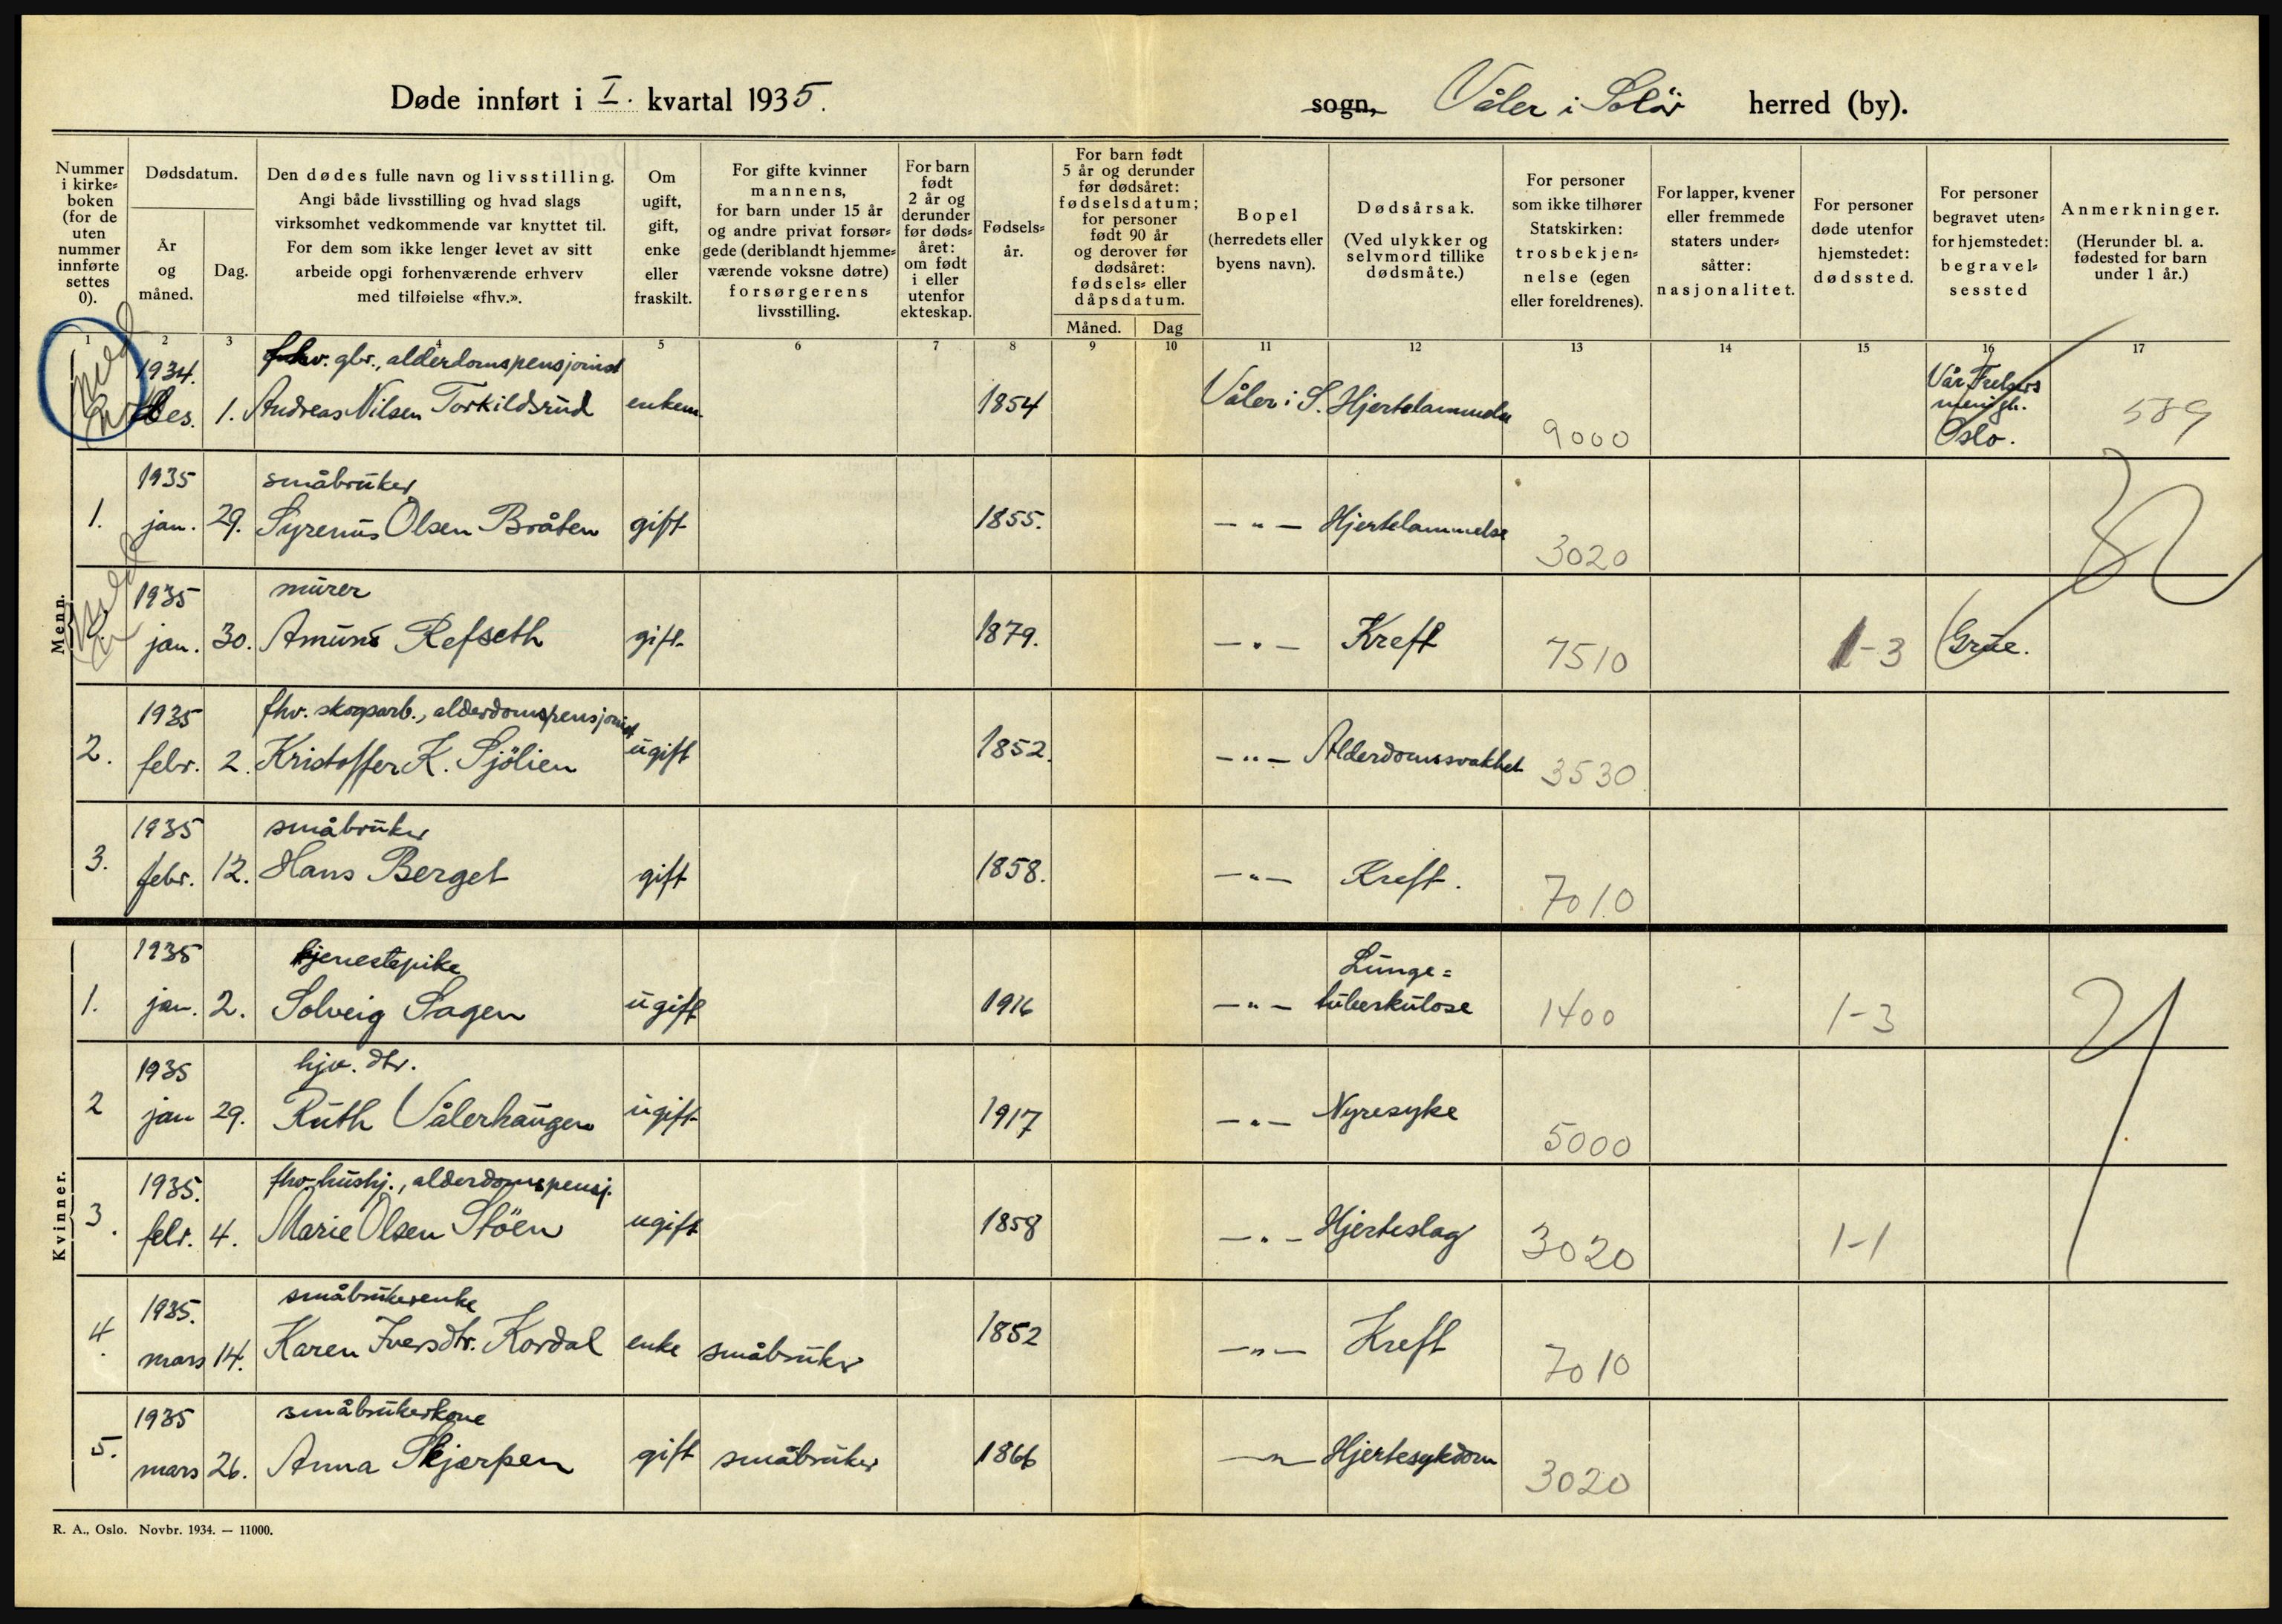 Døde innført i I. kvartal 1935.
sogn, Våler i Solör herred (by).
Nummer i kirke= boken (for de uten nummer innførte settes 0).
Dødsdatum.
År og måned.
Dag.
Den dødes fulle navn og livsstilling.
Angi både livsstilling og hvad slags
virksomhet vedkommende var knyttet til.
For dem som ikke lenger levet av sitt
arbeide opgi forhenværende erhverv
med tilføielse «fhv.».
Om ugift, gift, enke eller fraskilt.
For gifte kvinner mannens, for barn under 15 år og andre privat forsør= gede (deriblandt hjemme= værende voksne døtre) forsørgerens livsstilling.
For barn født 2 år og derunder før døds= året: om født i eller utenfor ekteskap.
Fødsels= år.
For barn født 5 år og derunder før dødsåret: fødselsdatum; for personer født 90 år og derover før dødsåret: fødsels= eller dåpsdatum.
Måned. Dag
Bopel (herredets eller byens navn).
Dødsårsak. (Ved ulykker og selvmord tillike dødsmåte.)
For personer som ikke tilhører Statskirken: trosbekjen= nelse (egen eller foreldrenes).
For lapper, kvener eller fremmede staters under= såtter: nasjonalitet.
For personer døde utenfor hjemstedet: dødssted.
For personer begravet uten= for hjemstedet: begravel= sessted
Anmerkninger. (Herunder bl. a. fødested for barn under 1 år.)
1 2 3 4 5 6 7 8 9 10 11 12 13 14 15 16 17
Menn.
1934. fhv. gbr., alderdomspensjonist Vår Frelsers menigh.
des. 1. Andreas Nilsen Torkildsrud enkem. 1854 Våler i S. Hjertelammelse 9000 Oslo. 589
1935 småbruker
1. jan. 29. Syrenus Olsen Bråten gift 1855. — " — Hjertelammelse 3020
1935 murer
jan. 30. Amund Refseth gift. 1879. — " — Kreft 7510 1-3 Grue.
1935 fhv. skogsarb., alderdomspensjonist
2. febr. 2. Kristoffer K. Sjölien ugift 1852. — " — Alderdomssvakhet 3530
1935 småbruker
3. febr. 12. Hans Berget gift 1858. — " — Kreft. 7010
Kvinner.
1935 tjenestepike Lunge=
1. jan. 2. Solveig Sagen ugift 1916 — " — tuberkulose 1400 1-3
1935 hjv. dtr.
2 jan 29. Ruth Vålerhaugen ugift 1917 — " — Nyresyke 5000
1935. fhv. hushj., alderdomspensj.
3. febr. 4. Marie Olsen Stöen ugift 1858 — " — Hjerteslag 3020 1-1
1935. småbrukerenke
4. mars 14. Karen Iversdtr. Kordal enke småbruker 1852 — " — Kreft 7010
1935 småbrukerkone
5. mars 26. Anna Skjærpen gift småbruker 1866 — " — Hjertesykdom 3020
R. A., Oslo. Novbr. 1934. — 11000.